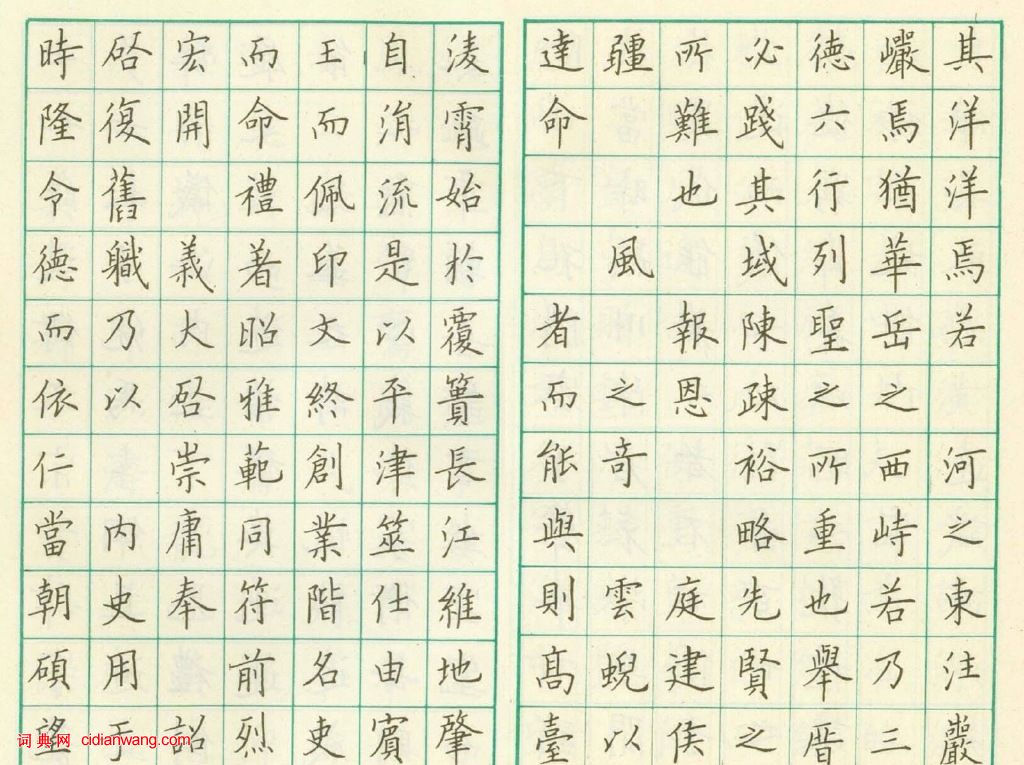 其洋洋焉若 河之東注巖
巗焉猶華岳之西峙若乃三
德六行列聖之所重也舉厝
必踐其域陳疎裕略先賢之
所難也 報恩 庭建侯
疆 風 之奇 雲蜺以
達命 者而能與則髙臺
淩霄始於覆簣長江維地肇
自涓流是以平津筮仕由賓
王而佩印文終創業階名吏
而命禮著昭雅範同符前烈
宏開 義大啓崇庸奉 詔
启復舊職乃以 内史用于
時隆令德而依仁當朝碩望
词典网 cidianwang.com